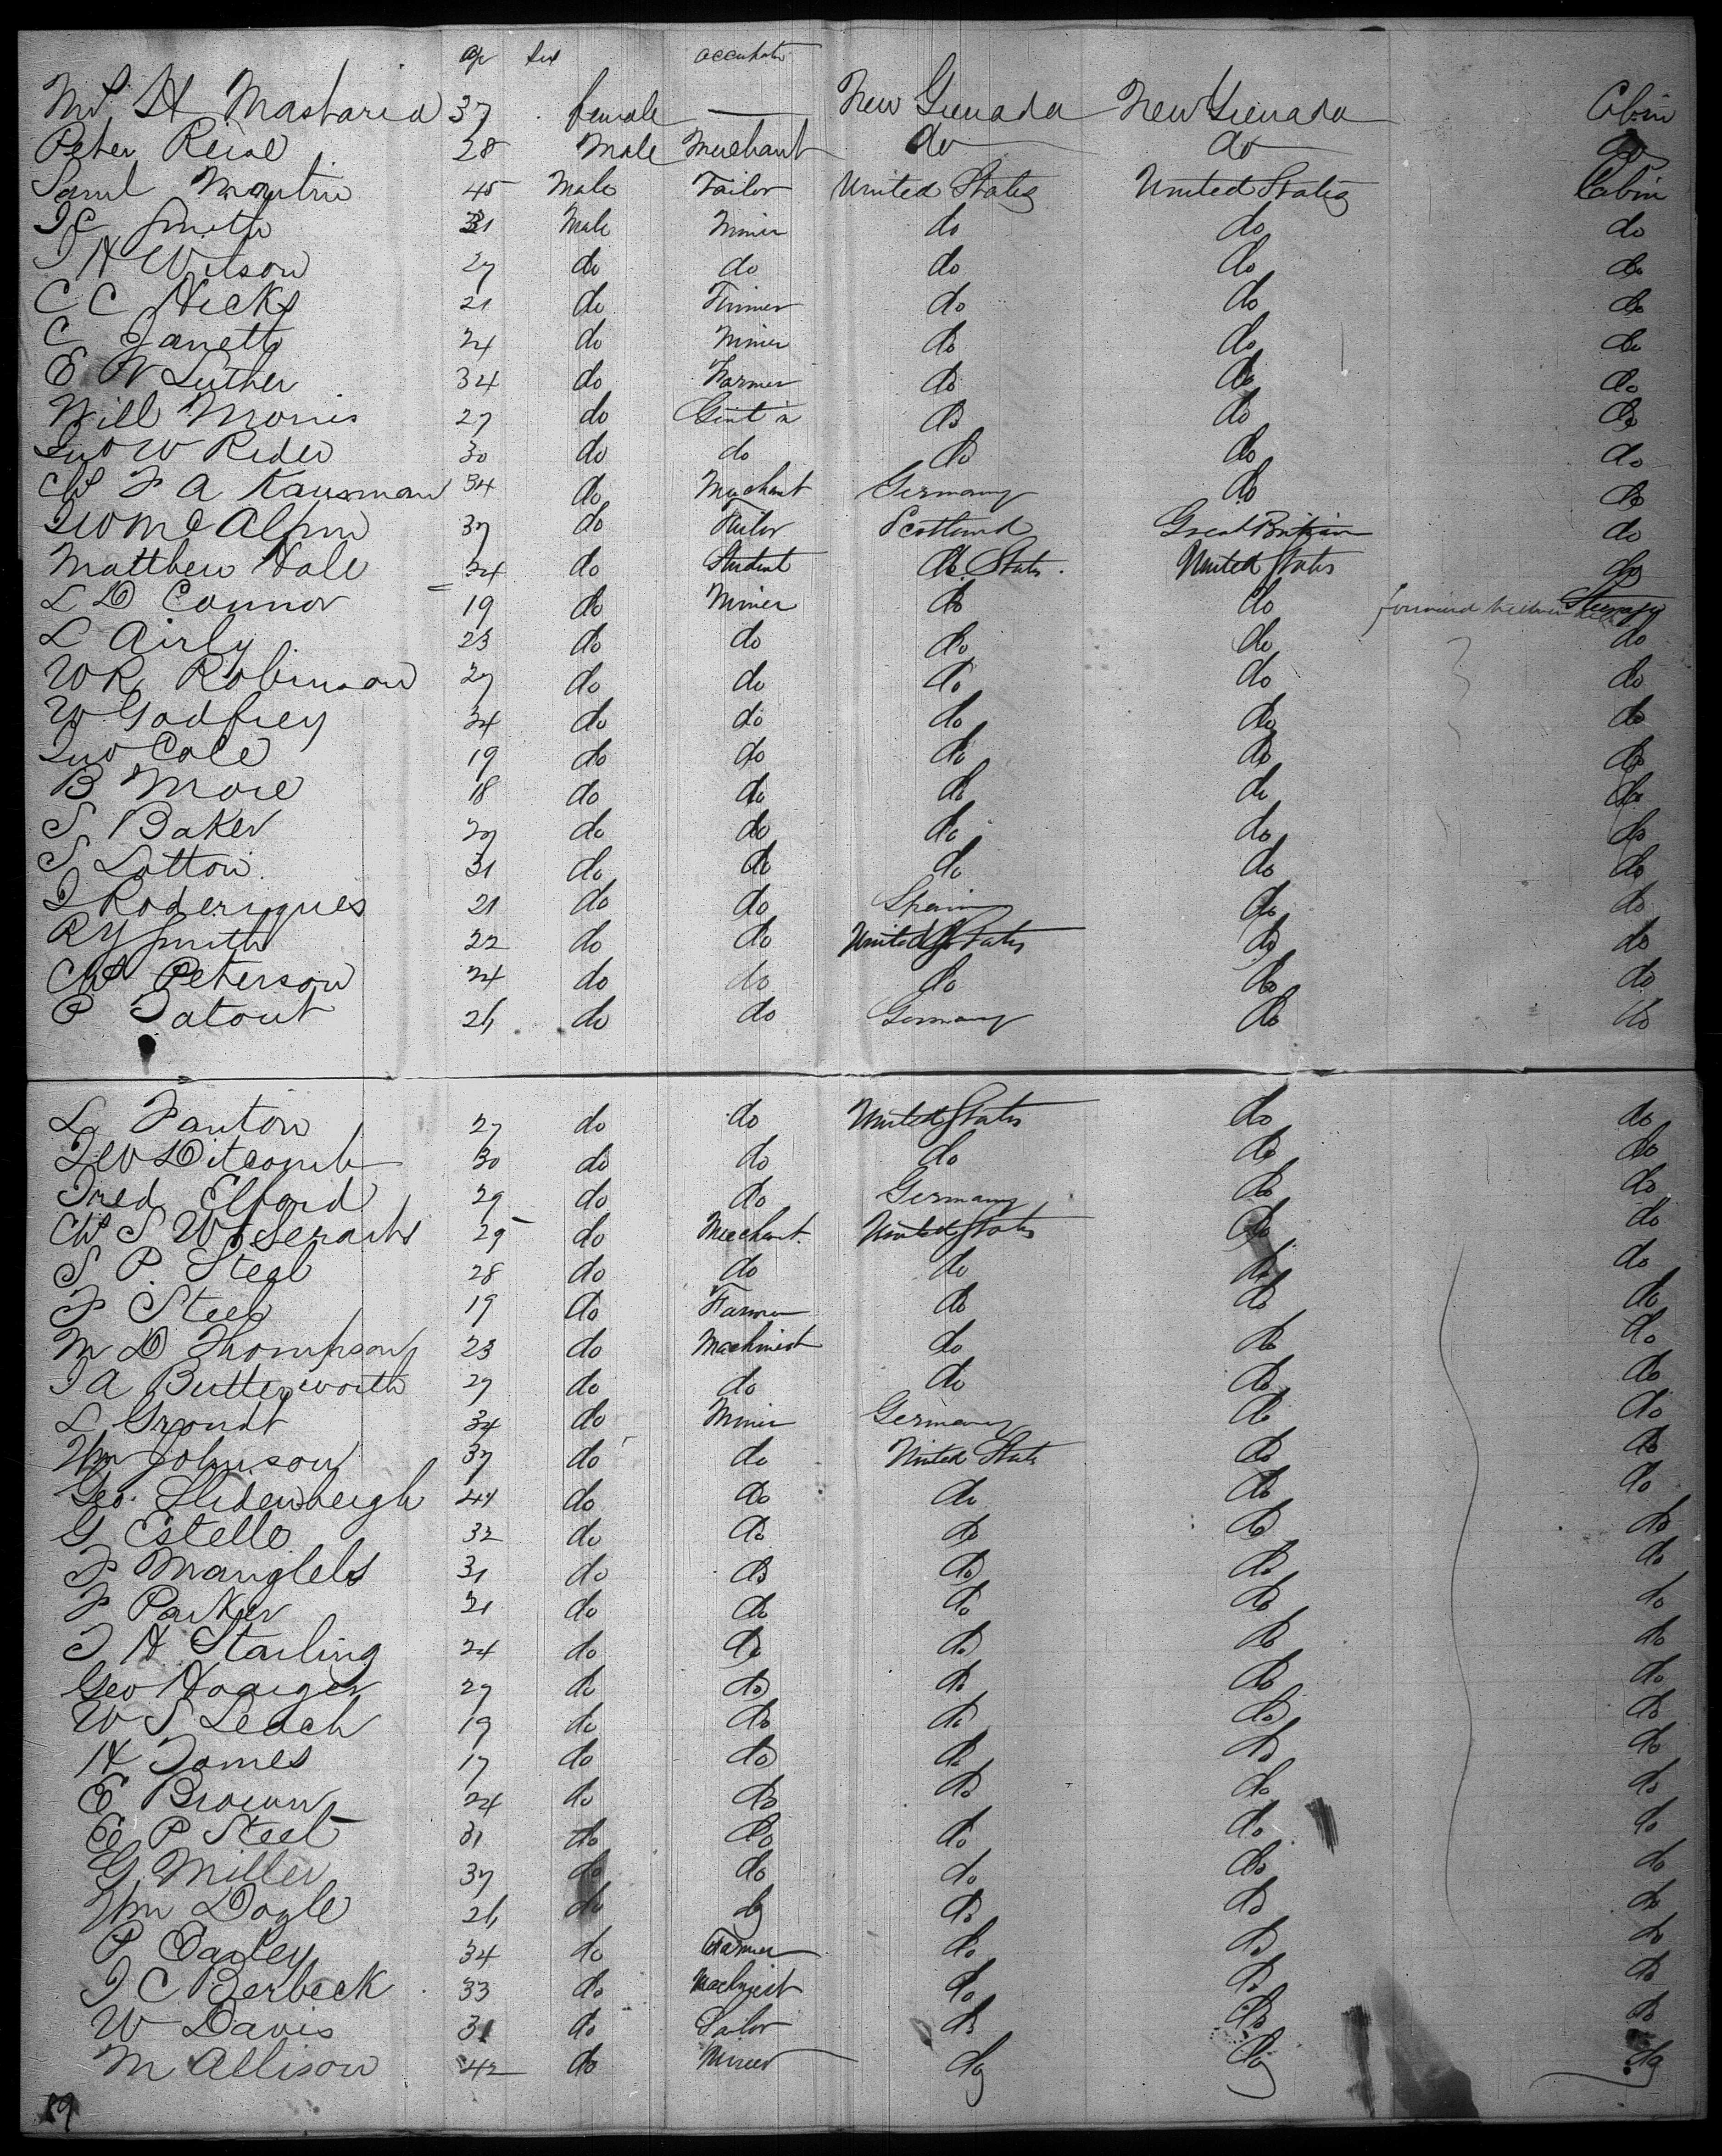 age sex occupation
Mrs H Mastaria 37 female — New Grenada New Grenada Cabin
Peter 28 Male Merchant do do do
Saml Martin 45 Male Tailor United States United States Cabin
J C Smith 31 Male Miner do do do
J H Wilson 27 do do do do do
C C Hicks 21 do do do do
C Janett 24 do Miner do do do
E W Luther 34 do Farmer do do do
Will Morris 27 do do do do
Jno W Rider 30 do do do do do
F A Kausman 34 do Merchant Germany do do
McAlpin 37 do Scotland Great Britian do
Matthew Hale 24 do Student U. States. United States do
L D Connor 19 do Miner do do forward between Steerage
L Airly 23 do do do do do
W R Robinson 27 do do do do do
W Godfrey 24 do do do do do
Jno Cole 19 do do do do do
B More 18 do do do do do
S Baker 29 do do do do do
S Lotton 31 do do do do do
J Roderigues 21 do do Spain do do
R Y Smith 22 do do United States do do
Peterson 24 do do do do do
P Tatout 26 do do Germany do do
L Fanton 27 do do United States do do
Geo Ditcomb 30 do do do do do
Fred Elford 29 do do Germany do do
S W 29 do Merchant United States do do
S P Steel 28 do do do do do
F Steel 19 do Farmer do do do
M D Thompson 23 do Machinist do do do
J A Butterworth 27 do do do do do
L Grondt 34 do Miner Germany do do
Wm Johnson 37 do do United States do do
Geo. 44 do do do do do
G Estelle 32 do do do do do
F Manglels 31 do do do do do
F Parker 21 do do do do do
J H Starling 24 do do do do do
Geo 27 do do do do do
W S Leach 19 do do do do do
H James 17 do do do do do
E Brown 24 do do do do do
E P Steel 31 do do do do do
G Miller 37 do do do do do
Wm Doyle 26 do do do do do
P Oarley 34 do Farmer do do do
J C Berbeck 33 do Machinist do do do
W Davis 31 do Sailor do do do
M Allison 42 do Miner do do do